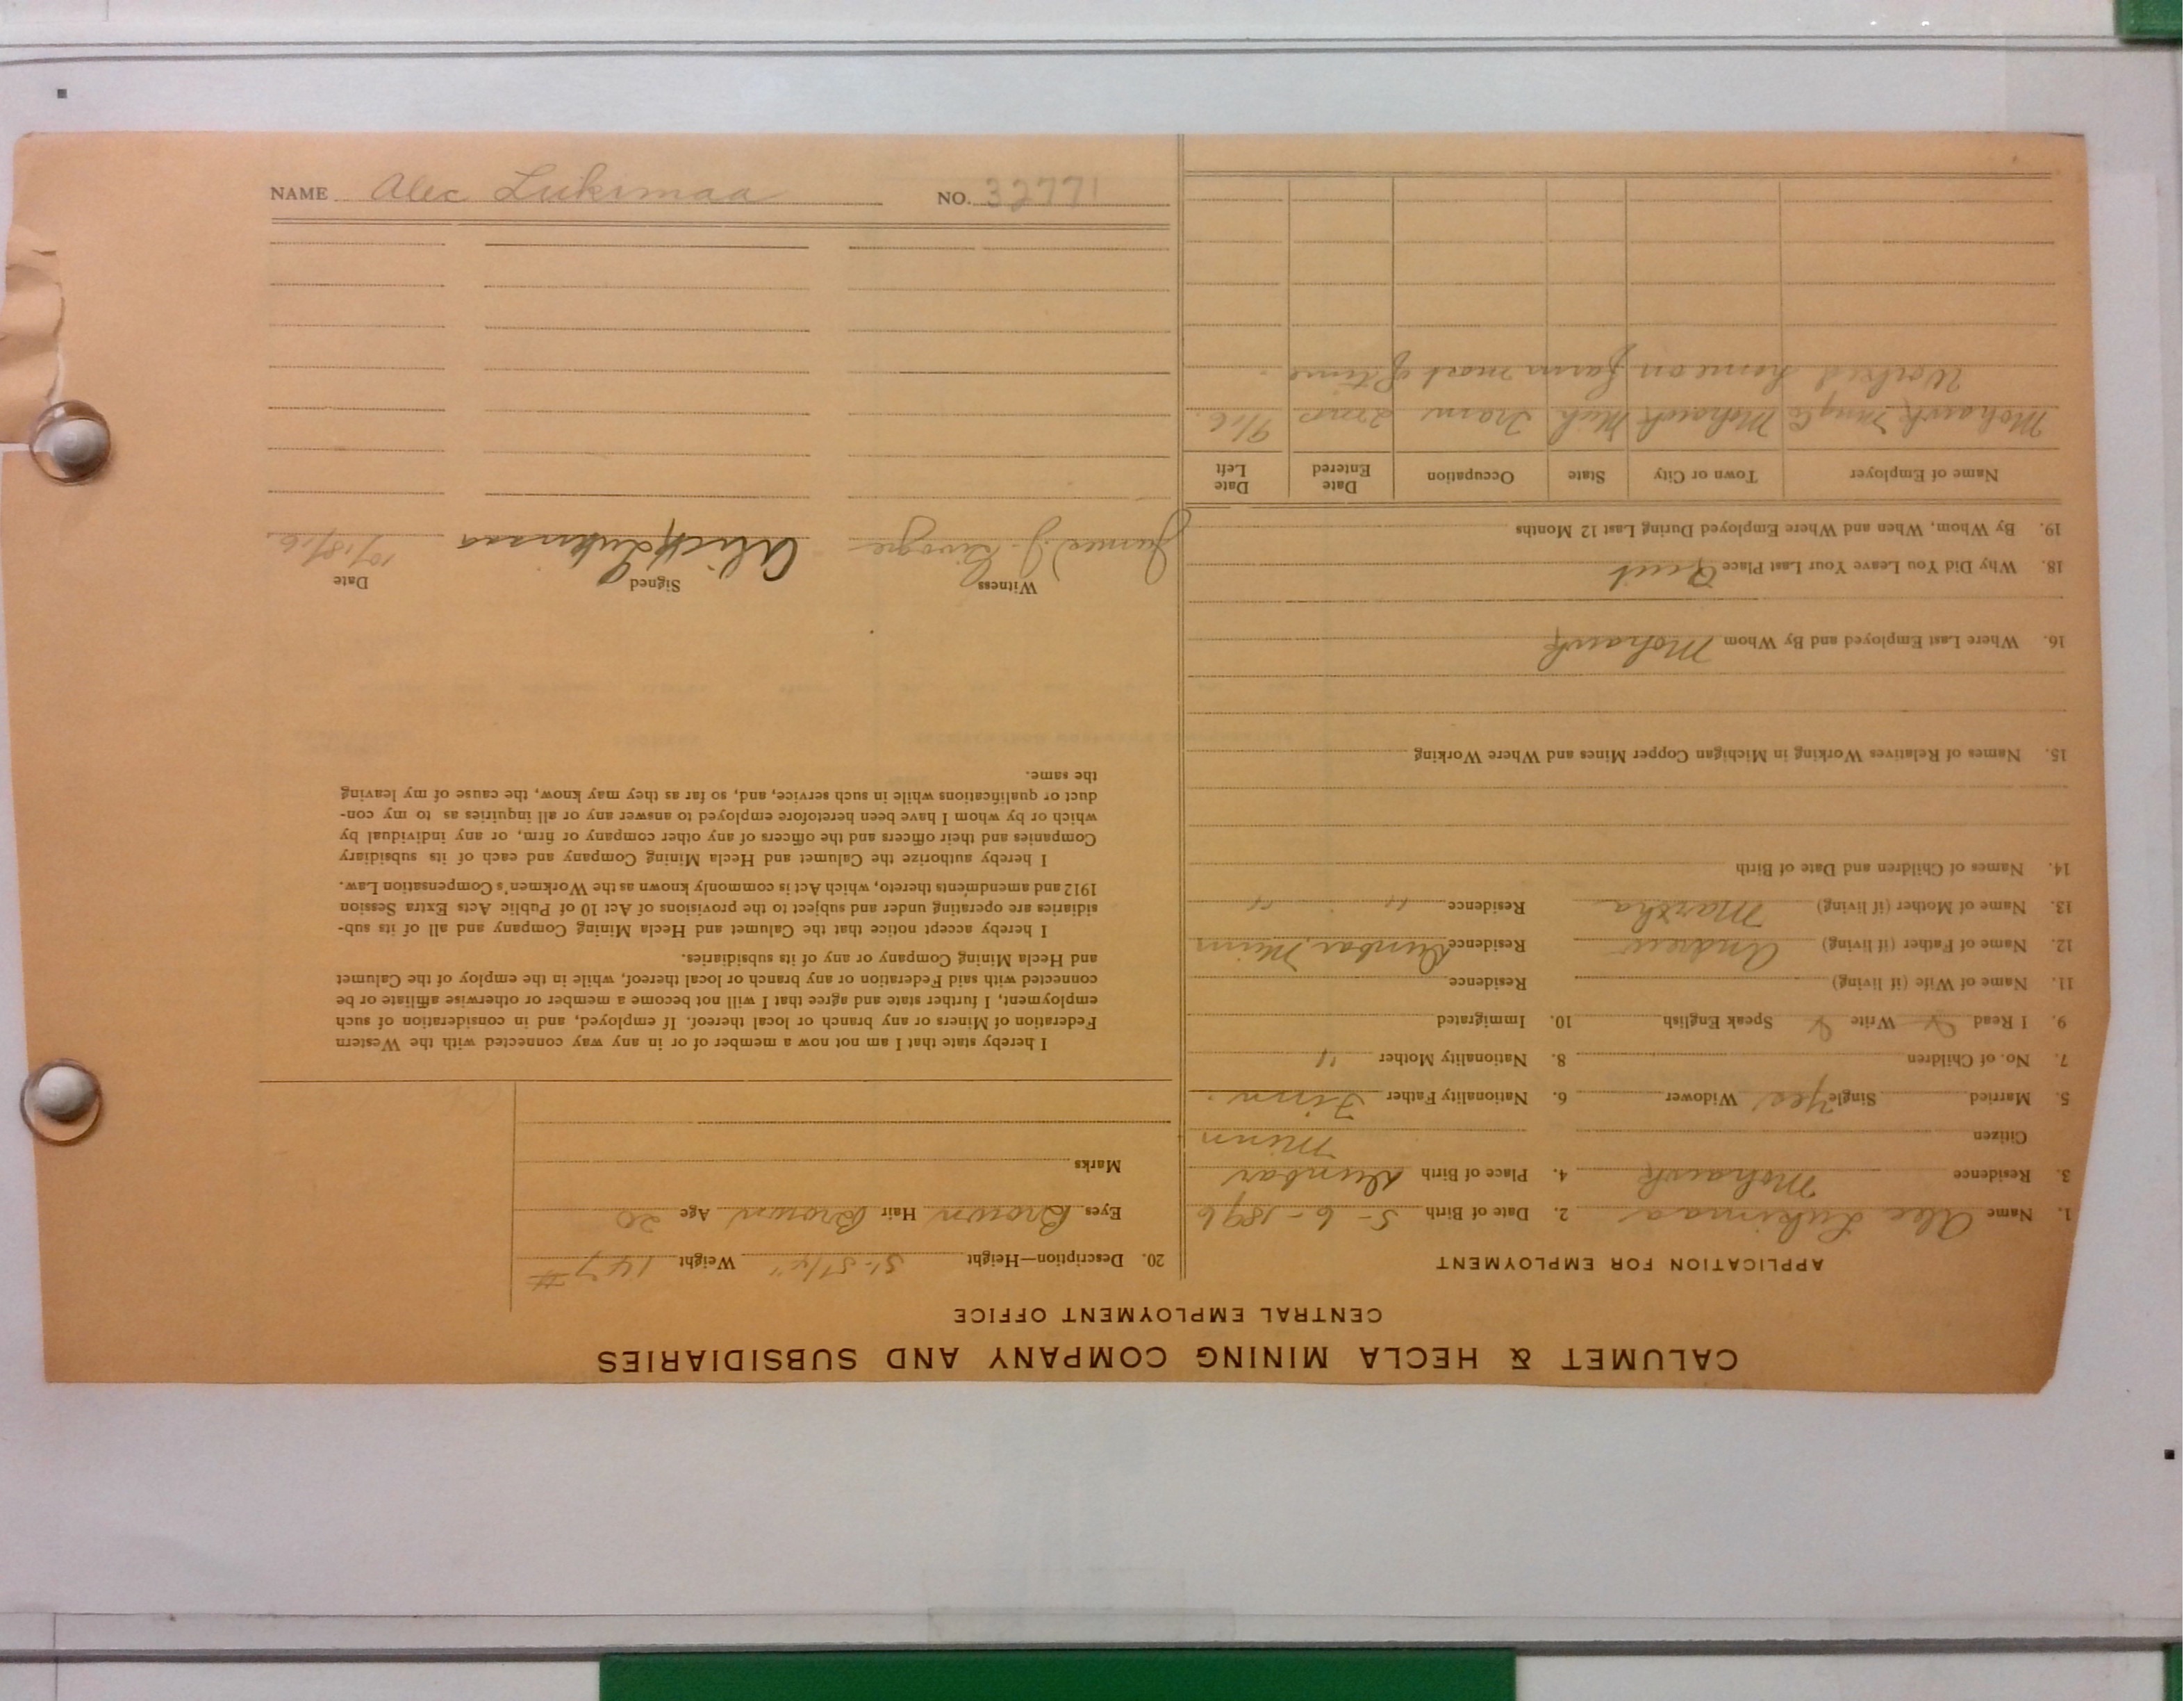 CALUMET & HECLA MINING COMPANY AND SUBSIDIARIES
CENTRAL EMPLOYMENT OFFICE
APPLICATION FOR EMPLOYMENT
1. Name Alec Lukimaa 2. Date of Birth 5-6-1896
3. Residence Mohawk 4. Place of Birth Dunbar
Citizen Minn
5. Married Single Yes Widower 6. Nationality Father Finn.
7. No. of Children 8. Nationality Mother "
9. I Read Write Speak English 10. Immigrated
11. Name of Wife (if living) Residence
12. Name of Father (if living) Andrew Residence Dunbar, Minn
13. Name of Mother (if living) Martha Residence " "
14. Names of Children and Date of Birth
15. Names of Relatives Working in Michigan Copper Mines and Where Working
16. Where Last Employed and By Whom Mohawk
18. Why Did You Leave Your Last Place Quit
19. By Whom, When and Where Employed During Last 12 Months
Name of Employer Town or City State Occupation Date Entered Date Left
Mohawk Mng Co Mohawk Mich Tram 2 mos 9/16.
Worked home on farm most of time.
20. Description—Height 5'-5 1/4" Weight 147#
Eyes Brown Hair Brown Age 20
Marks
I hereby state that I am not now a member of or in any way connected with the Western
Federation of Miners or any branch or local thereof. If employed, and in consideration of such
employment, I further state and agree that I will not become a member or otherwise affiliate or be
connected with said Federation or any branch or local thereof, while in the employ of the Calumet
and Hecla Mining Company or any of its subsidiaries.
I hereby accept notice that the Calumet and Hecla Mining Company and all of its sub-
sidiaries are operating under and subject to the provisions of Act 10 of Public Acts Extra Session
1912 and amendments thereto, which Act is commonly known as the Workmen's Compensation Law.
I hereby authorize the Calumet and Hecla Mining Company and each of its subsidiary
Companies and their officers and the officers of any other company or firm, or any individual by
which or by whom I have been heretofore employed to answer any or all inquiries as to my con-
duct or qualifications while in such service, and, so far as they may know, the cause of my leaving
the same.
Witness Signed Date
James J. Alick Lukimaa 10/18/16
NAME Alec Lukimaa NO. 32771